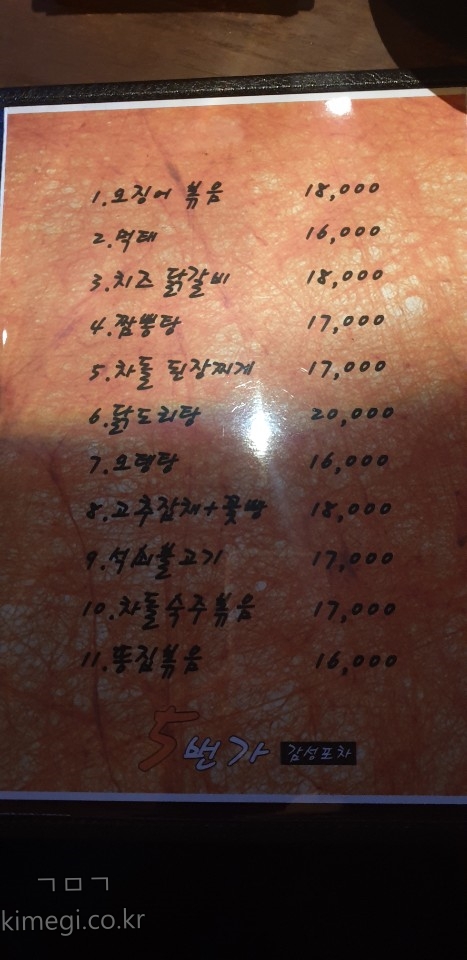 1.오징어 볶음 18,000
2.먹태 16,000
3.치즈 닭갈비 18,000
4.짬뽕탕 17,000
5.차돌 된장찌게 17,000
6.닭도리탕 20,000
7.오뎅탕 16,000
8.고추잡채+꽃빵 18,000
9.석쇠불고기 17,000
10.차돌숙주볶음 17,000
11.똥집볶음 16,000
5번가 감성포차
ㄱㅁㄱ
kimegi.co.kr